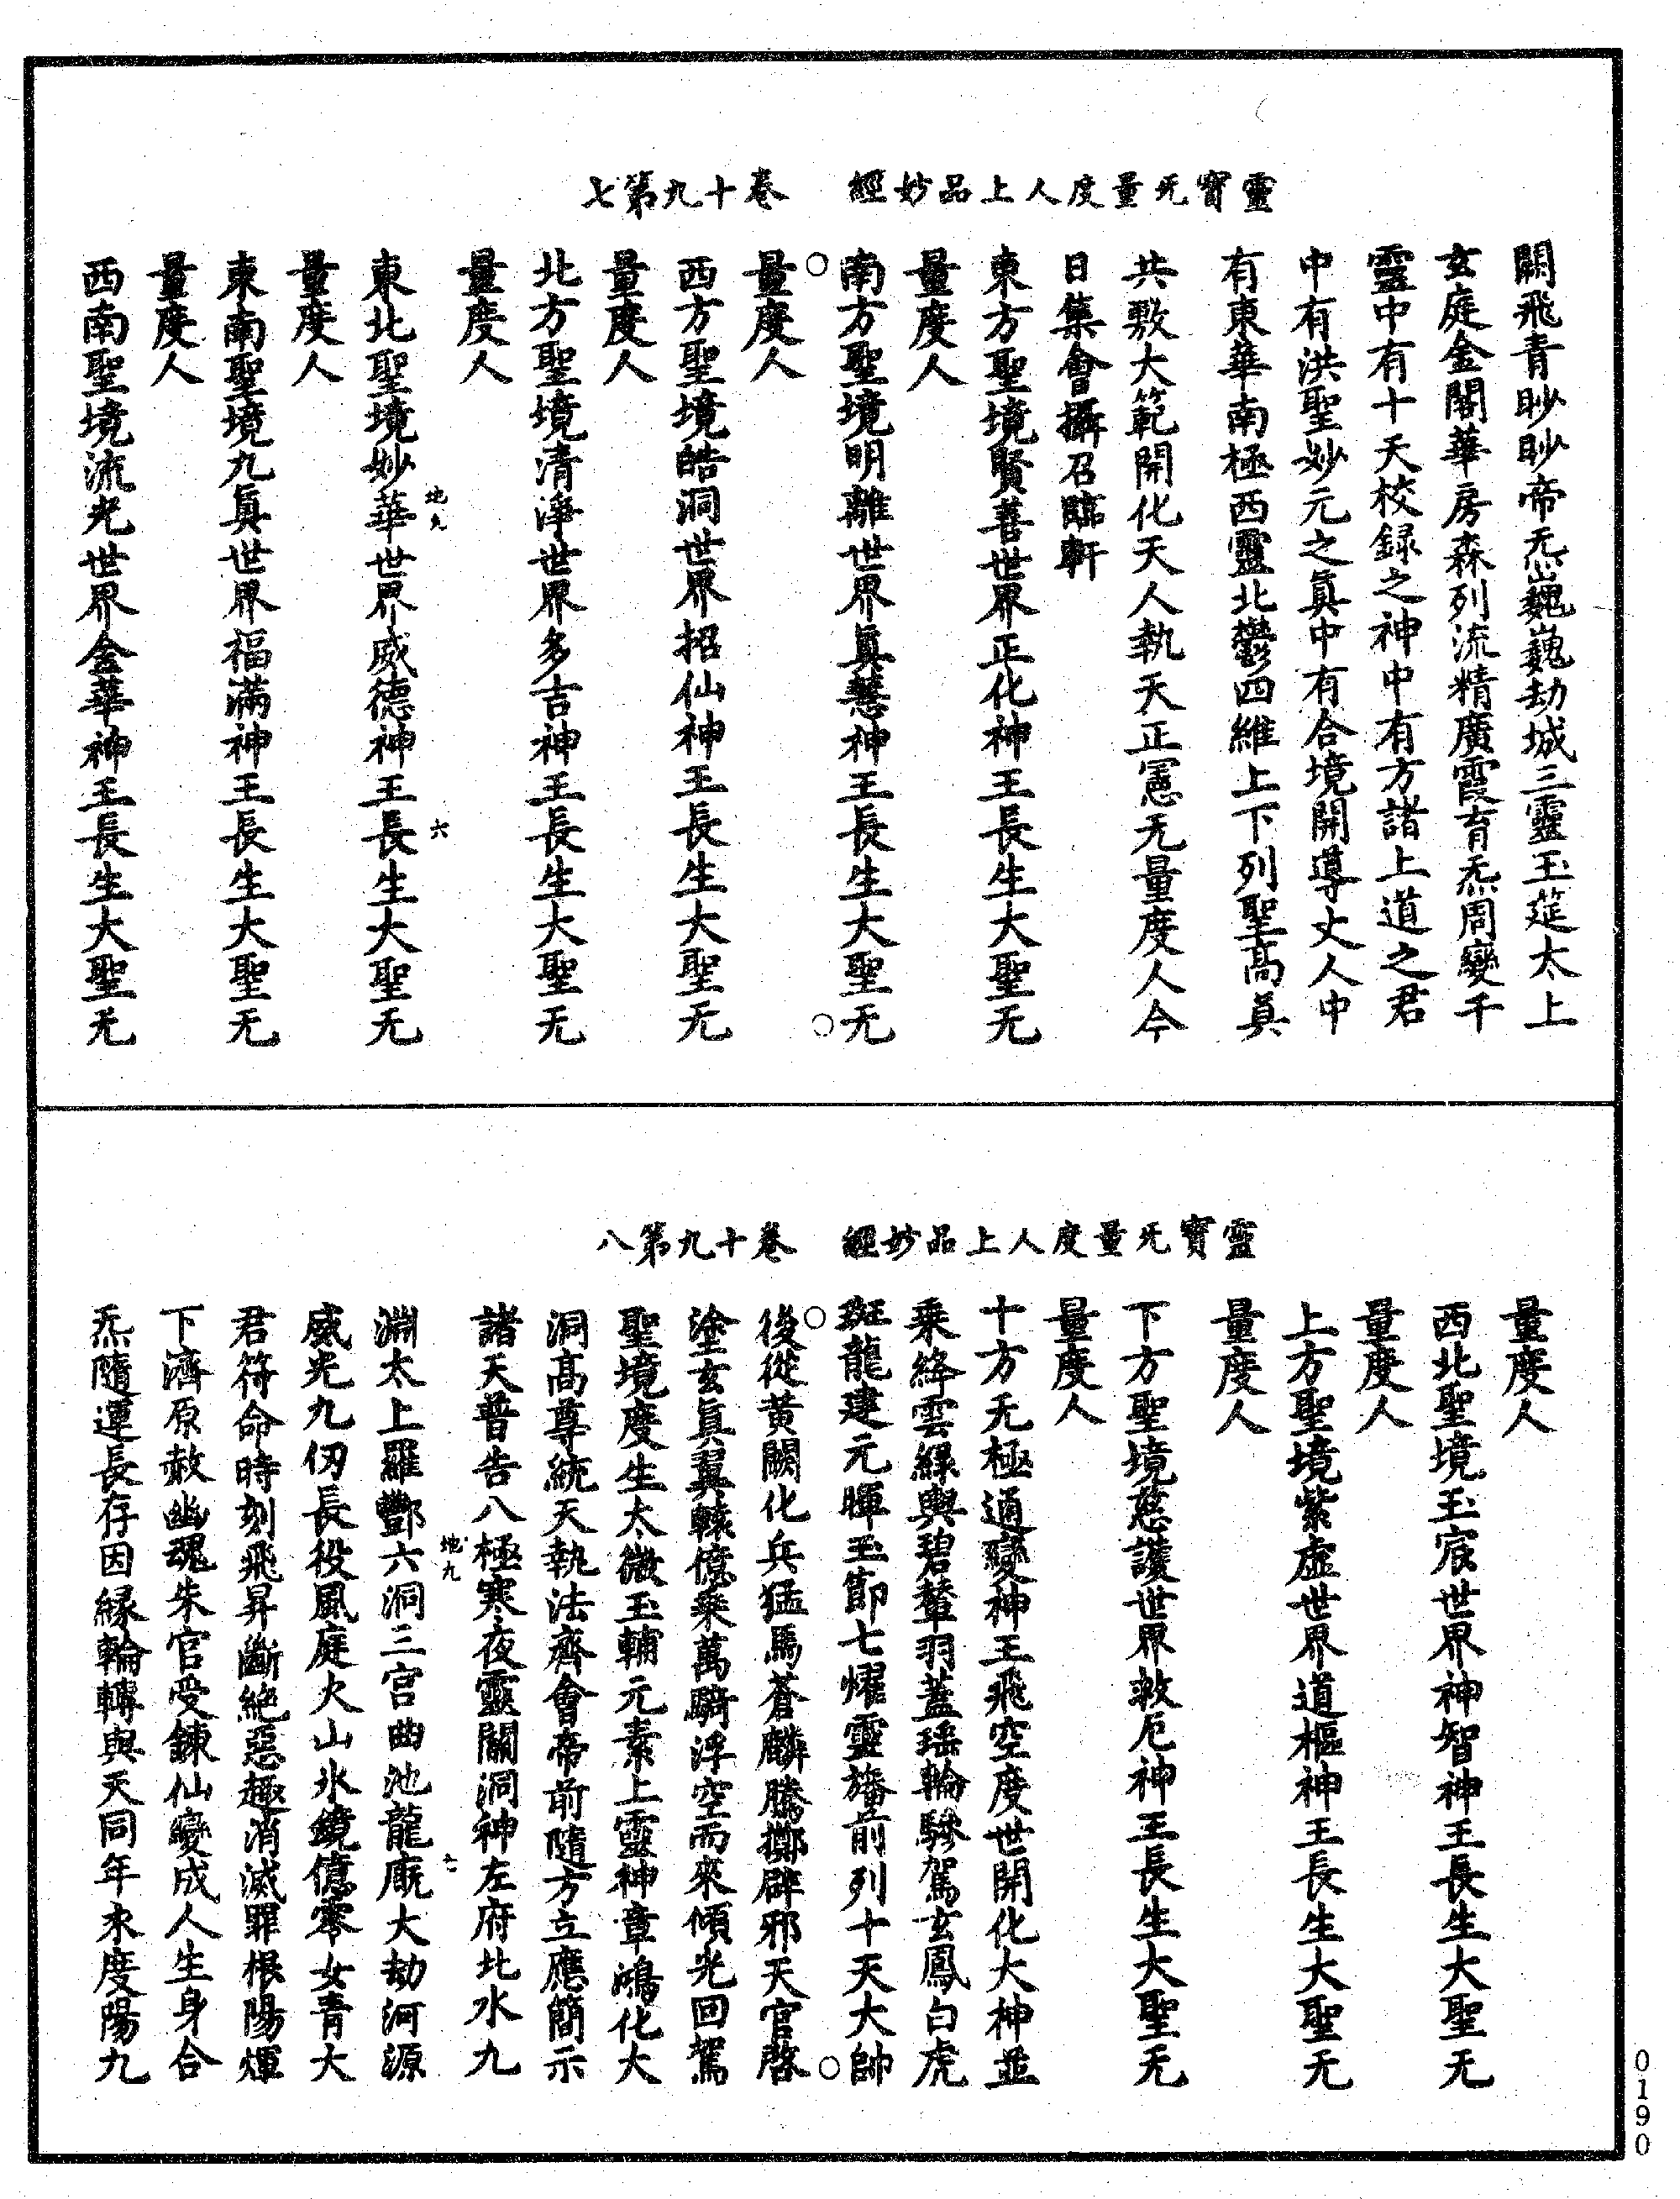 靈寶无量度人上品妙經　卷十九第七
闕飛青眇眇帝炁巍巍劫城三靈玉莚太上
玄庭金閣華房森列流精廣霞育炁周變千
靈中有十天校録之神中有方諸上道之君
中有洪聖妙元之真中有合境開導丈人中
有東華南極西靈北鬱四維上下列聖高真
共敷大範開化天人執天正憲无量度人今
日集會攝召臨軒
東方聖境賢善世界正化神王長生大聖无
量度人
南方聖境明離世界真慧神王長生大聖无
量度人
西方聖境皓洞世界招仙神王長生大聖无
量度人
北方聖境清淨世界多吉神王長生大聖无
量度人
地九　六
東北聖境妙華世界威德神王長生大聖无
量度人
東南聖境九真世界福滿神王長生大聖无
量度人
西南聖境流光世界金華神王長生大聖无
靈寶无量度人上品妙經　卷十九第八
量度人
西北聖境玉宸世界神智神王長生大聖无
量度人
上方聖境紫虛世界道樞神王長生大聖无
量度人
下方聖境慈護世界救厄神王長生大聖无
量度人
十方无極通變神王飛空度世開化大神並
乘絳雲緑輿碧輦羽蓋瑤輪驂駕玄鳳白虎
斑龍建元暉玉節七燿靈旛前列十天大帥
後從黃闕化兵猛馬蒼麟騰擲辟邪天官啓
塗玄真翼轅億乘萬騎浮空而來傾光回駕
聖境度生太微玉輔元素上靈神章鴻化大
洞高尊統天執法齊會帝前隨方立應簡示
諸天普告八極寒夜靈關洞神左府北水九
地九　七
淵太上羅酆六洞三官曲池龍廐大劫河源
威光九仞長役風庭火山氷鏡億零女青大
君符命時刻飛昇斷絶惡趣消滅罪根陽煇
下濟原赦幽魂朱官受鍊仙變成人生身合
炁隨運長存因縁輪轉與天同年未度陽九
0190